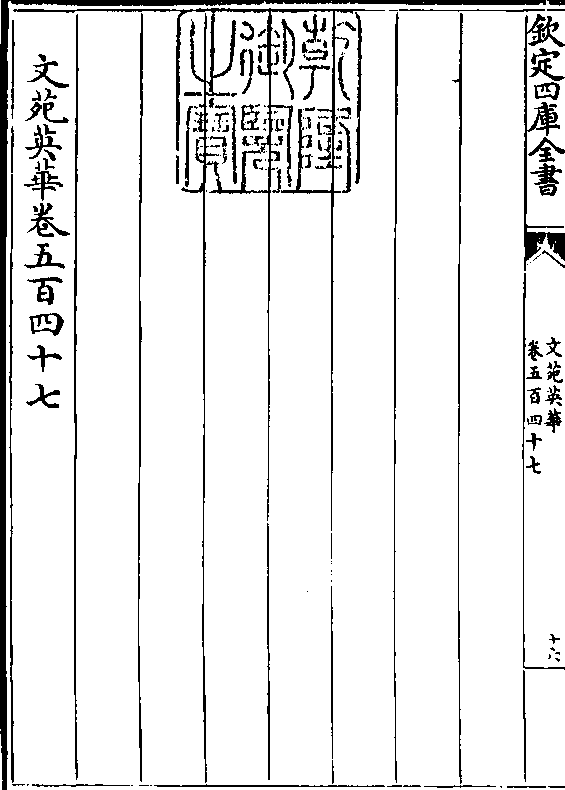 欽定四庫全書
文苑英華
卷五百四十七
十六
乾隆
御覽
之寶
文苑英華卷五百四十七